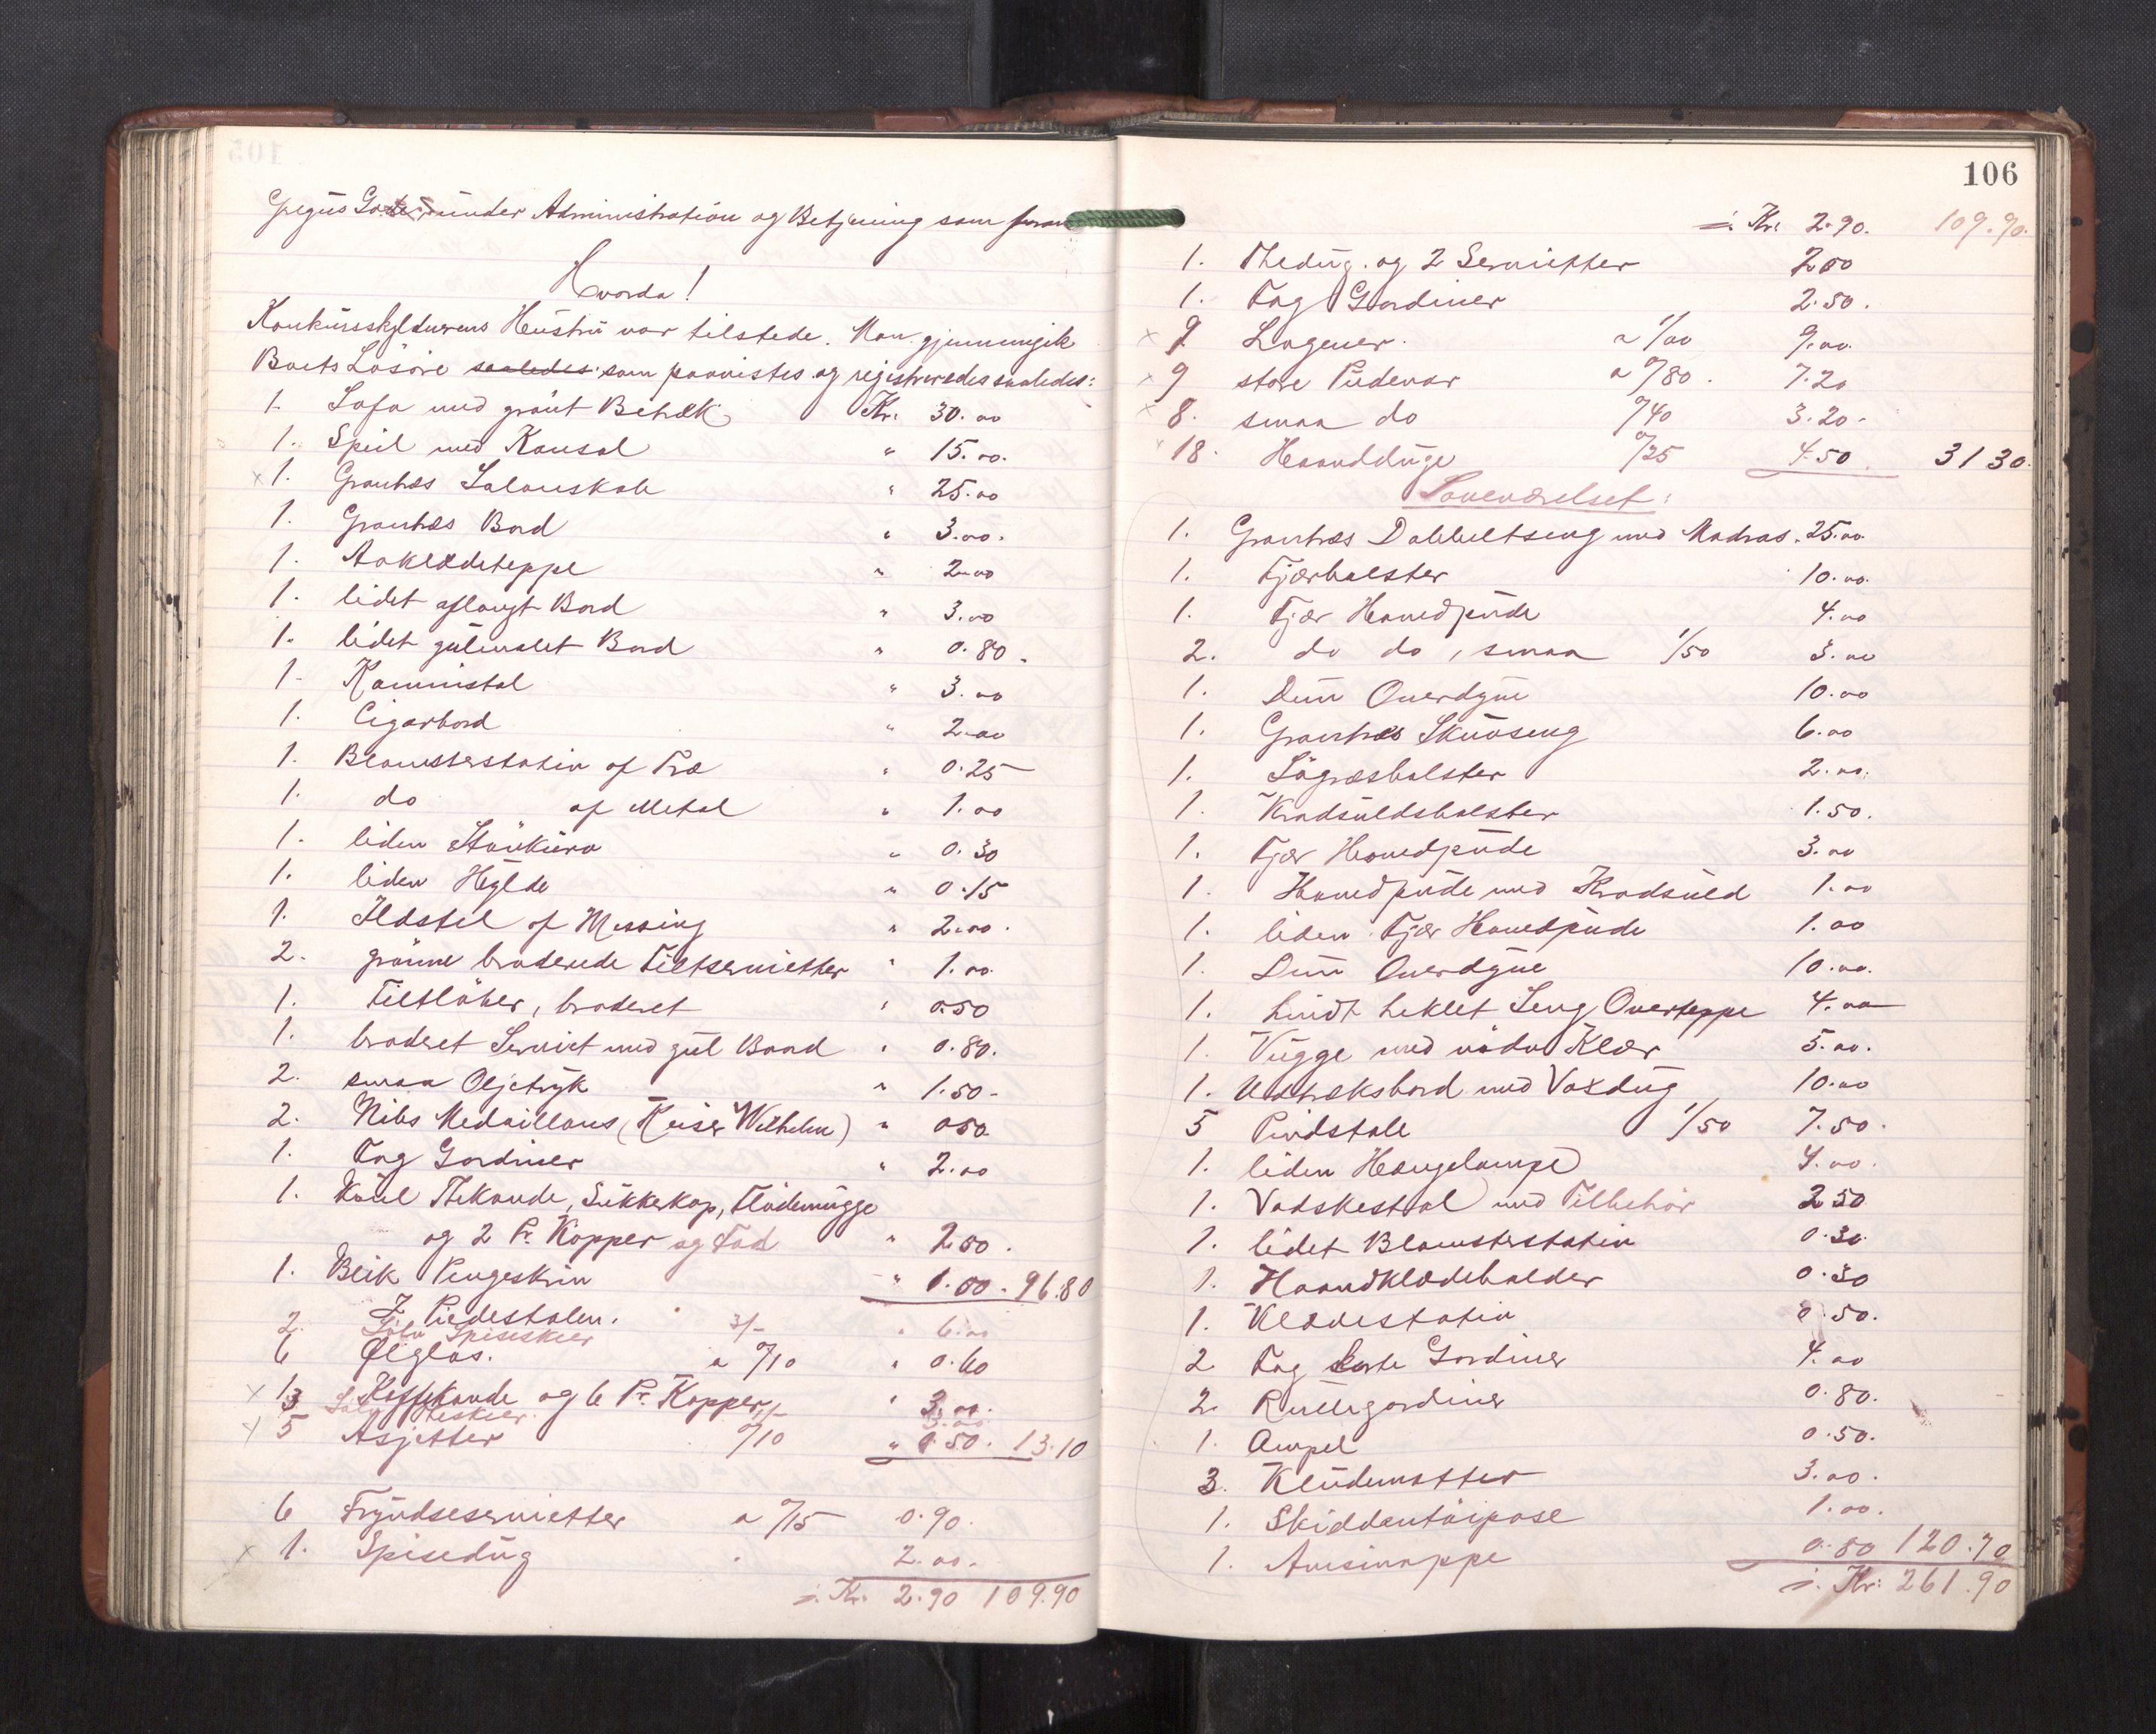 Gregus Gade under Administration og Betjening som foran
Hvorda!
Konkursskyldnerens Hustru var tilstede. Man gjennemgik
Boets Lösöre saaledes som paavistes og registreredes saaledes:
1. Sofa med grönt Betræk Kr. 30.00
1. Speil med Konsol " 15.00.
x 1. Grantræs Salonskab " 25.00
1. Grantræs Bord " 3.00.
1. Aaklædeteppe " 2.00
1. lidet aflangt Bord " 3.00
1. lidet gulmalet Bord " 0.80.
1. Kaminstol " 3.00
1. Cigarbord " 2.00
1. Blomsterstativ af Træ " 0.25
1. do af Metal " 1.00
1. liden 0.30
1. liden Hylde " 0.15
1. Ildstel af Messing " 2.00.
2. grönne broderede Filtservietter " 1.00.
1. Filtlöber, broderet " 0.50
1. broderet Serviet med gul Baand " 0.80.
2. smaa Oljetryk " 1.50-
2. Nibs Medaillons (Keiser Wilhelm) " 0.50
1. Fag Gardiner " 2.00
1. Thekande, Sukkerkop, Flödemugge
og 2 Pr. Kopper og Fad " 2.50.
1. Blik Pengeskrin " 1.00. 96.80
Piedestalen.
2. Sölv Spiseskeer 3/- " 6.00
6 Ølglas. a 0/10 " 0.60
x 1. Kaffekande og 6 Pr. Kopper " 3.00.
3 Sölv Theskeer 1/- 3.00
x 5 Asjetter 0/10 " 0.50. 13.10
6 Fryndseservietter a 0/15 0.90.
x 1. Spisedug 2.00.
i. Kr. 2.90 109.90
106
i. Kr. 2.90. 109.90.
1. Thedug. og 2 Servietter 2.00
1. Fag Gardiner 2.50.
x 9 Lagener. a 1/00 9.00.
x 9 store Pudevar a 0/80. 7.20
x 8. smaa do 0/40 3.20.
x 18. Haandduge 0/25 4.50. 31 30.
Soveværelset:
1. Grantræs Dobbeltseng med Madras. 25.00
1. Fjærbolster 10.00.
1. Fjær Hovedpude 4.00
2. do do, smaa 1/50 3.00
1. Dun Overdyne 10.00
1. Grantræs Skuvseng 6.00
1. Sögræsbolster 2.00.
1. Kradsuldsbolster 1.50.
1. Fjær Hovedpude 3.00
1. Hovedpude med Kradsuld 1.00
1. liden Fjær Hovedpude 1.00
1. Dun Overdyne 10.00.
1. hvidt heklet Seng Overteppe 4.00
1. Vugge med nödv Klær 5.00.
1. Udtræksbord med Voxdug 10.00
5 Pindstole 1/50 7.50.
1. liden Hængelampe 4.00.
1. Vadskestol med Tilbehör 2 50
1. lidet Blomsterstativ 0.30
1. Haandklædeholder 0.30
1. Klædestativ 0.50.
2 Fag korte Gardiner 4.00
2. Rullegardiner 0.80.
1. Ampel 0.50.
3. Kludematter 3.00.
1. Skiddentöipose 1.00.
1. Avismappe 0.80 120.70
i. Kr. 261.90